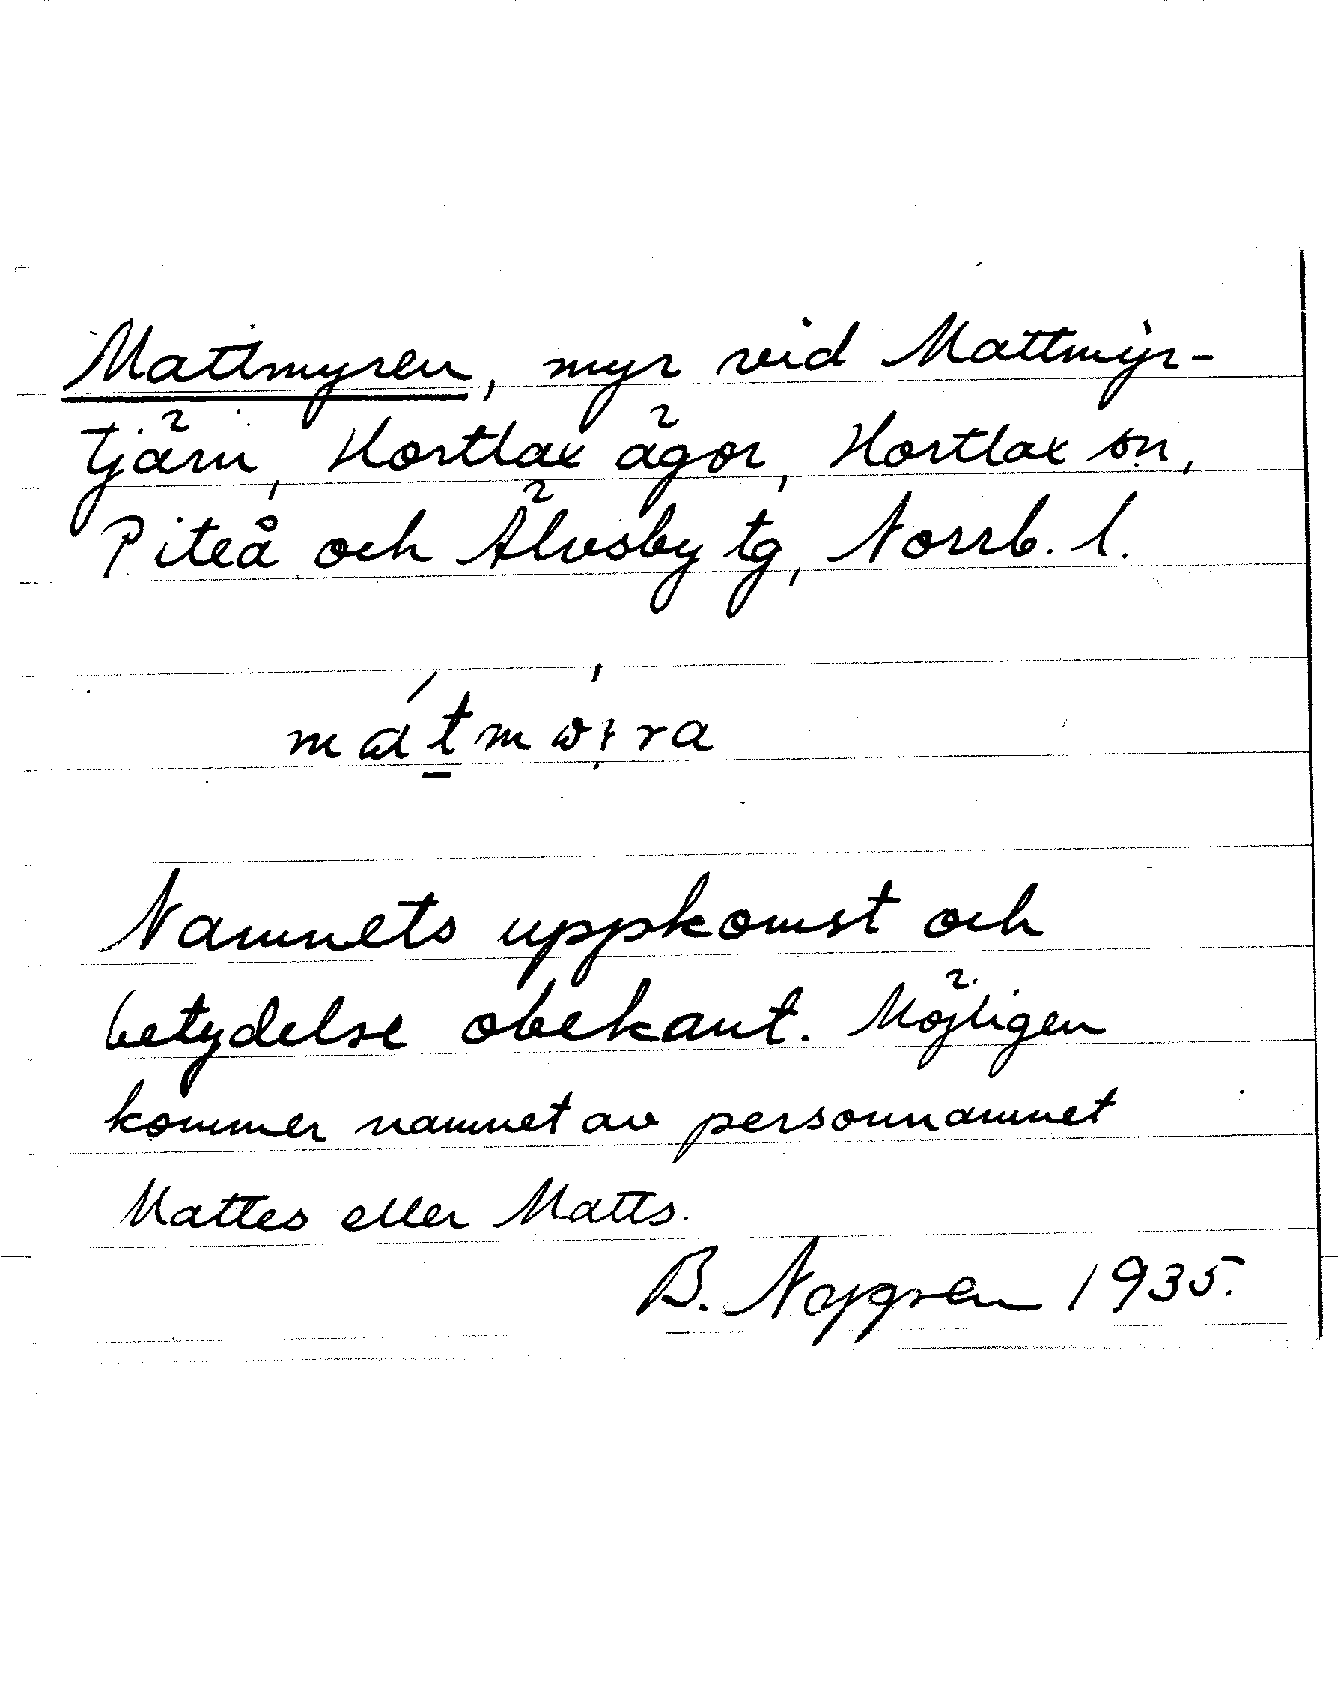 Mattmyren, myr vid Mattmyr-
tjärn, Hortlax ägor, Hortlax sn,
Piteå och Älvsby tg, Norrb. l.
Namnets uppkomst och
betydelse obekant. Möjligen
kommer namnet av personnamnet
Mattes eller Matts.
B. Nygren 1935.